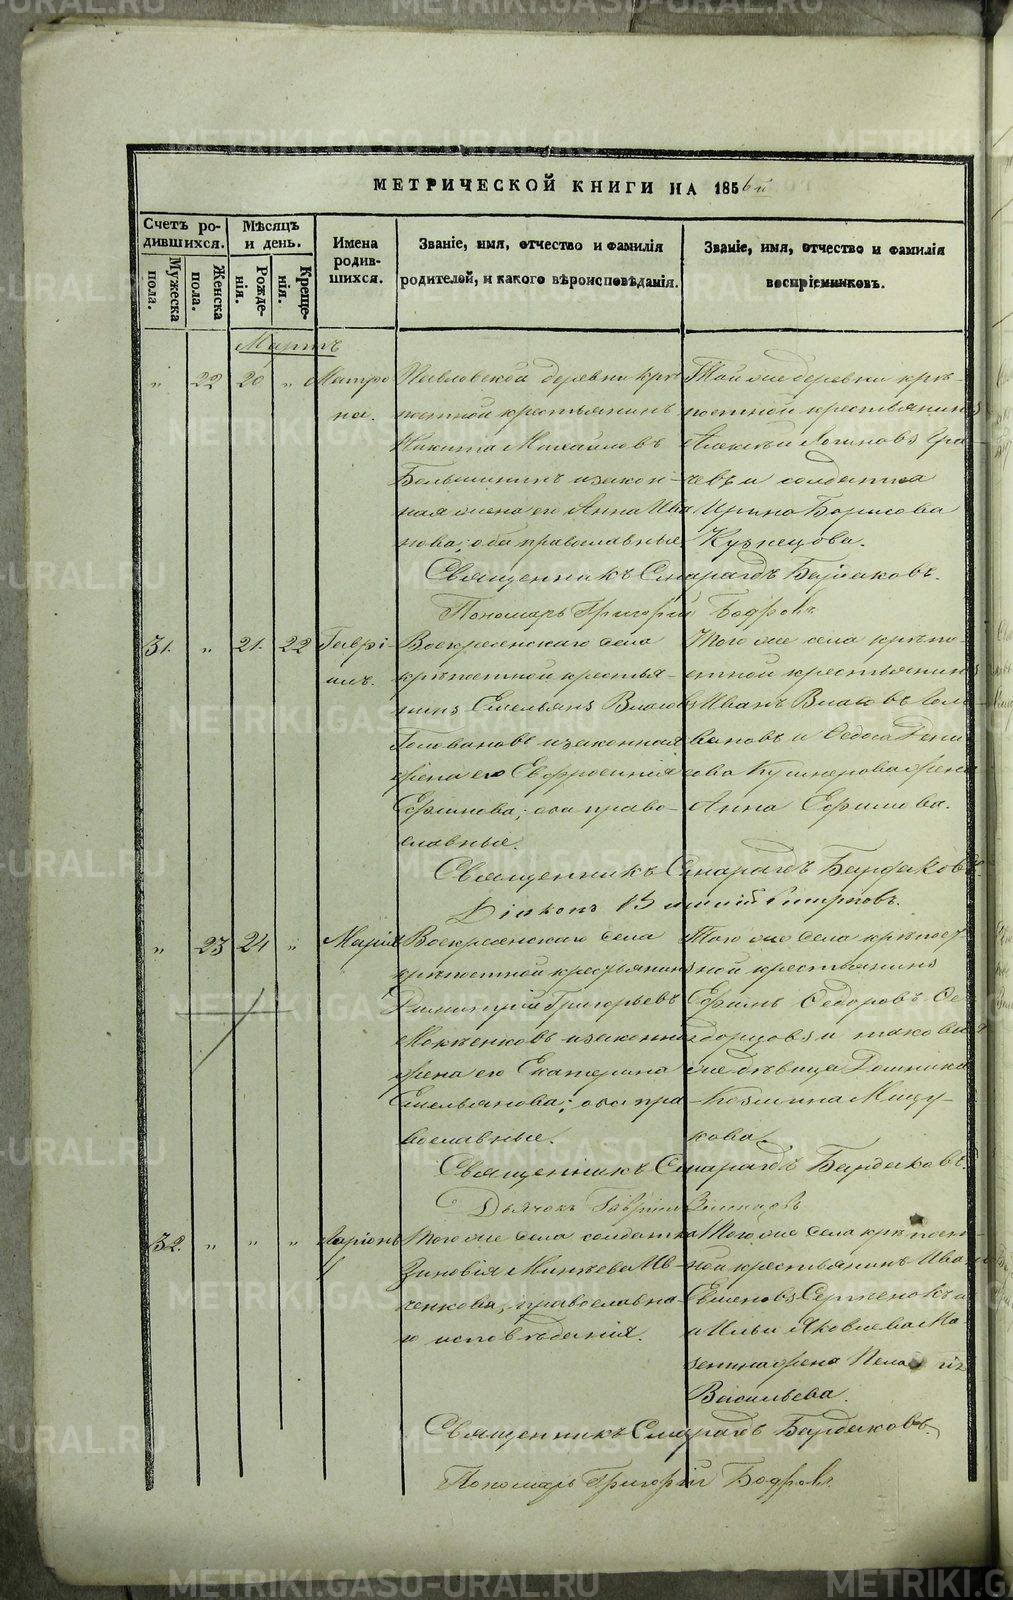 МЕТРИЧЕСКОЙ КНИГИ НА 1856й
Счетъ родившихся.
Мужеска пола.
Женска пола.
Мѣсяцъ и день.
Рожденія.
Крещенія.
Имена родившихся.
Званіе, имя, отчество и фамилія родителей, и какого вѣроисповѣданія.
Званіе, имя, отчество и фамилія воспріемниковъ.
Мартъ
„ 22 20 „ Матрона.
Павловской деревни крѣпостной крестьянинъ
Никита Михайловъ
и законная жена его Анна Иванова; оба православные
Той же деревни крѣпостной крестьянинъ
Алексѣй Логиновъ
и солдатка
Ирина Борисова
Кузнецова.
Священникъ Смарагдъ Бардаковъ.
Пономарь Григорій Бодровъ
31. „ 21. 22 Гавріилъ.
Воскресенскаго села
крѣпостной крестьянинъ Емельянъ Власовъ
Головановъ и законная
жена его Евфросинія
Ефимова; оба православные.
Того же села крѣпостной крестьянинъ
Иванъ Власовъ Головановъ и
жена
Анна Ефимова.
Священникъ Смарагдъ Бардаковъ.
Діаконъ Смирновъ.
„ 23 24 „ Марія
Воскресенскаго села
крѣпостной крестьянинъ
Димитрій Григорьевъ
и законная
жена его Екатерина
Емельянова; оба православные.
Того же села крѣпостной крестьянинъ
Ефимъ Ѳедоровъ
и таковая
же дѣвица Домника
Козмина
Священникъ Смарагдъ Бардаковъ.
Дьячокъ Гавріилъ
32. „ „ „ Ларіонъ
Того же села солдатка
Зиновія
православнаго исповѣданія.
Того же села крѣпостной крестьянинъ Иванъ
Семеновъ
и Ильи Яковлева
жена Пелагія
Васильева.
Священникъ Смарагдъ Бардаковъ.
Пономарь Григорій Бодровъ.
METRIKI.GASO-URAL.RU